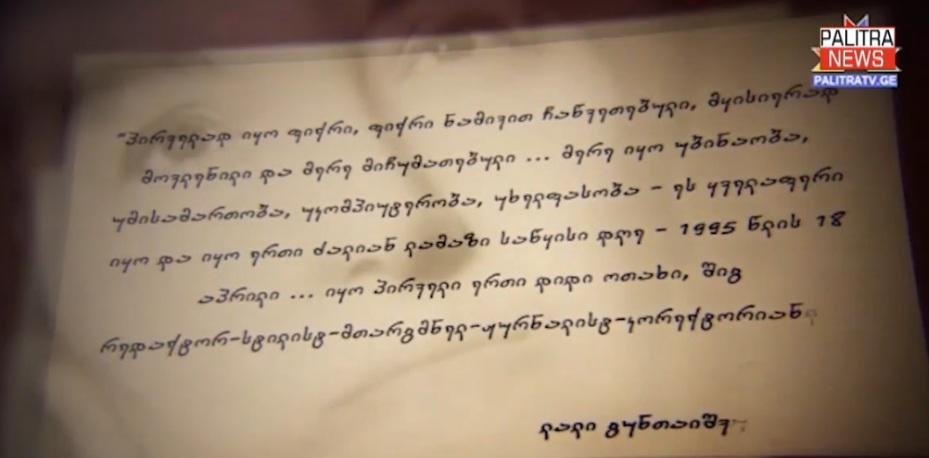 PALITRA
NEWS
PALITRATV.GE
"პირველად იყო ფიქრი, ფიქრი ნამივით ჩაწვეთებული, მყისიერად
მოვლენილი და მერე მიჩუმათებული ... მერე იყო უბინაობა,
უმისამართობა, უკომპიუტერობა, უხელფასობა - ეს ყველაფერი
იყო და იყო ერთი ძალიან ლამაზი საწყისი დღე - 1995 წლის 18
აპრილი ... იყო პირველი ერთი დიდი ოთახი, შიგ
რედაქტორ-სტილისტ-მთარგმნელ-ჟურნალისტ-კორექტორიანა
ლალი